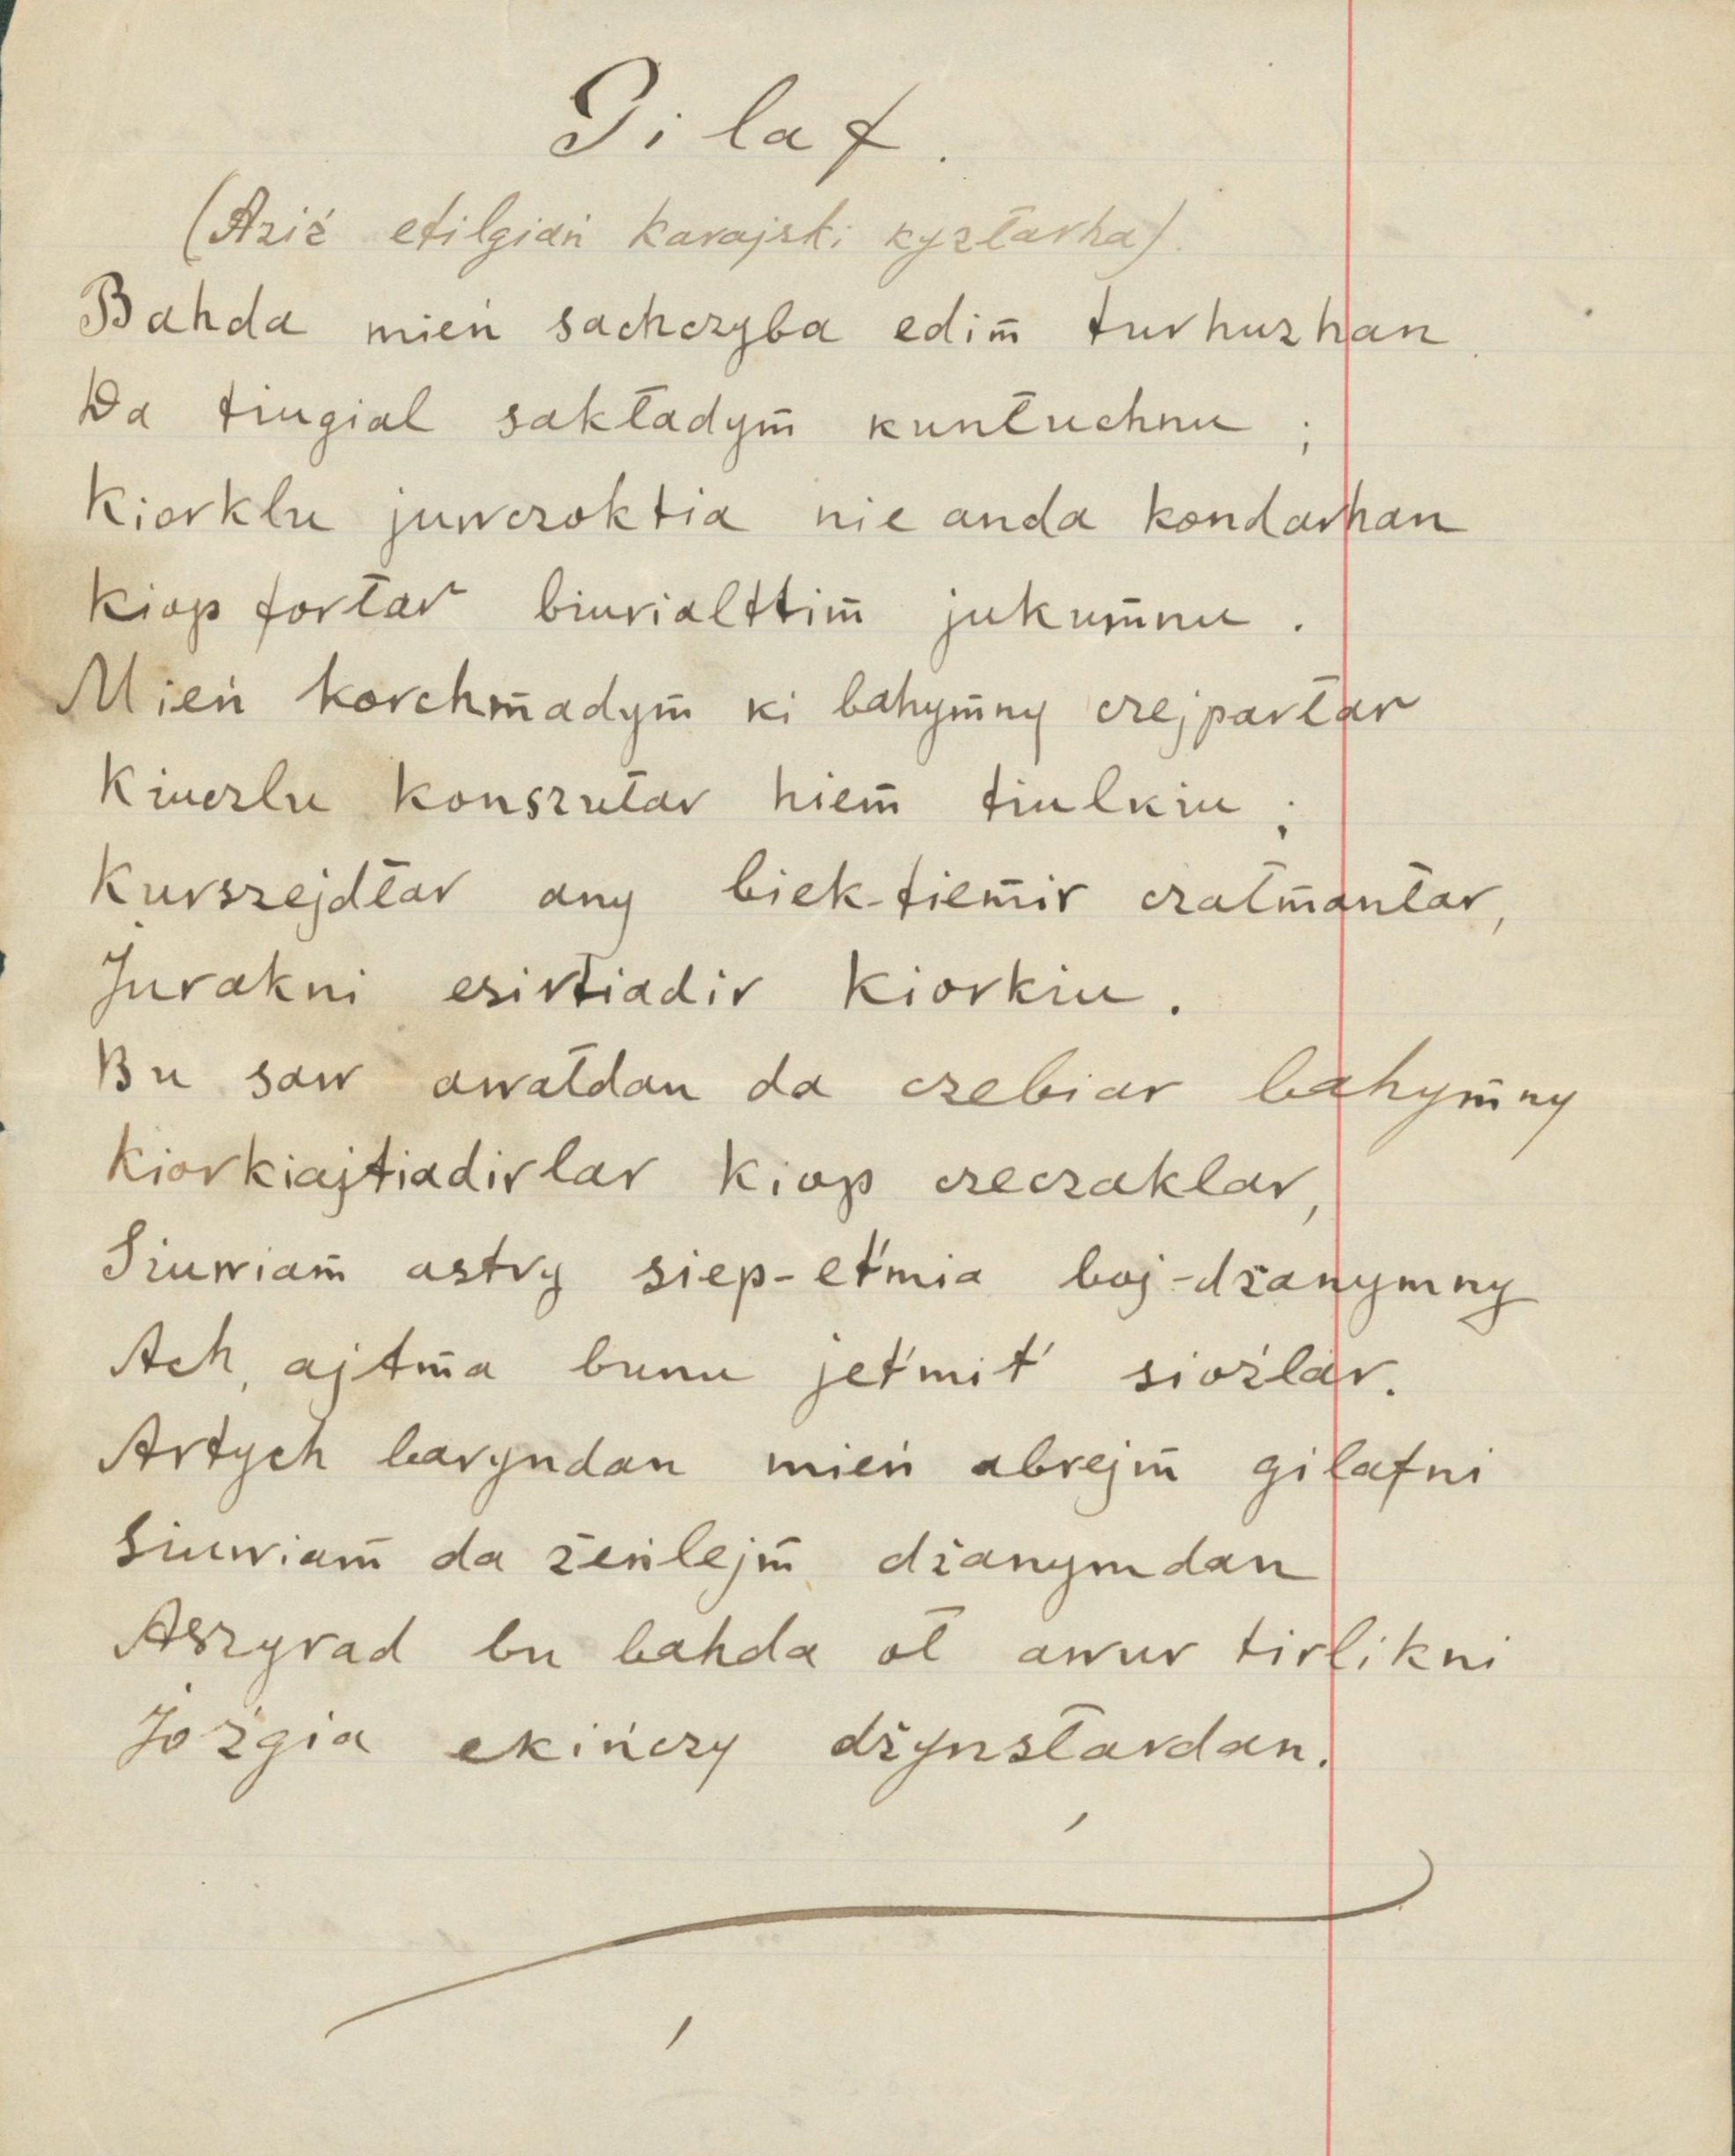 Gilaf.
(Aziź etilgiań karajski kyzłarha).
Bahda mień sachczyba edim̄ turhuzhan
Da tiugial sakładym̄ kunłuchnu ;
Kiorklu juwczoktia nie anda kondarhan
Kiop forłar biurialttim̄ jukum̄nu .
Mień korchm̄adym̄ ki bahym̄ny czejparłar
Kiuczlu konszułar hiem̄ tiulkiu ;
Kurszejdłar any biek-tiem̄ir czałm̄anłar,
Jurakni esirtiadir kiorkiu .
Bu saw awałdan da czebiar bahym̄ny
Kiorkiajtiadirlar kiop czeczaklar,
Siuwiam̄ astry siep-et́mia boj-dżanymny
Ach, ajtm̄a bunu jet́mit́ sioźlar.
Artych baryndan mień abrejm̄ gilafni
Siuwiam̄ da żeńlejm̄ dżanymdan
Aszyrad bu bahda oł awur tirlikni
Joźgia ekińczy dżynsłardan.